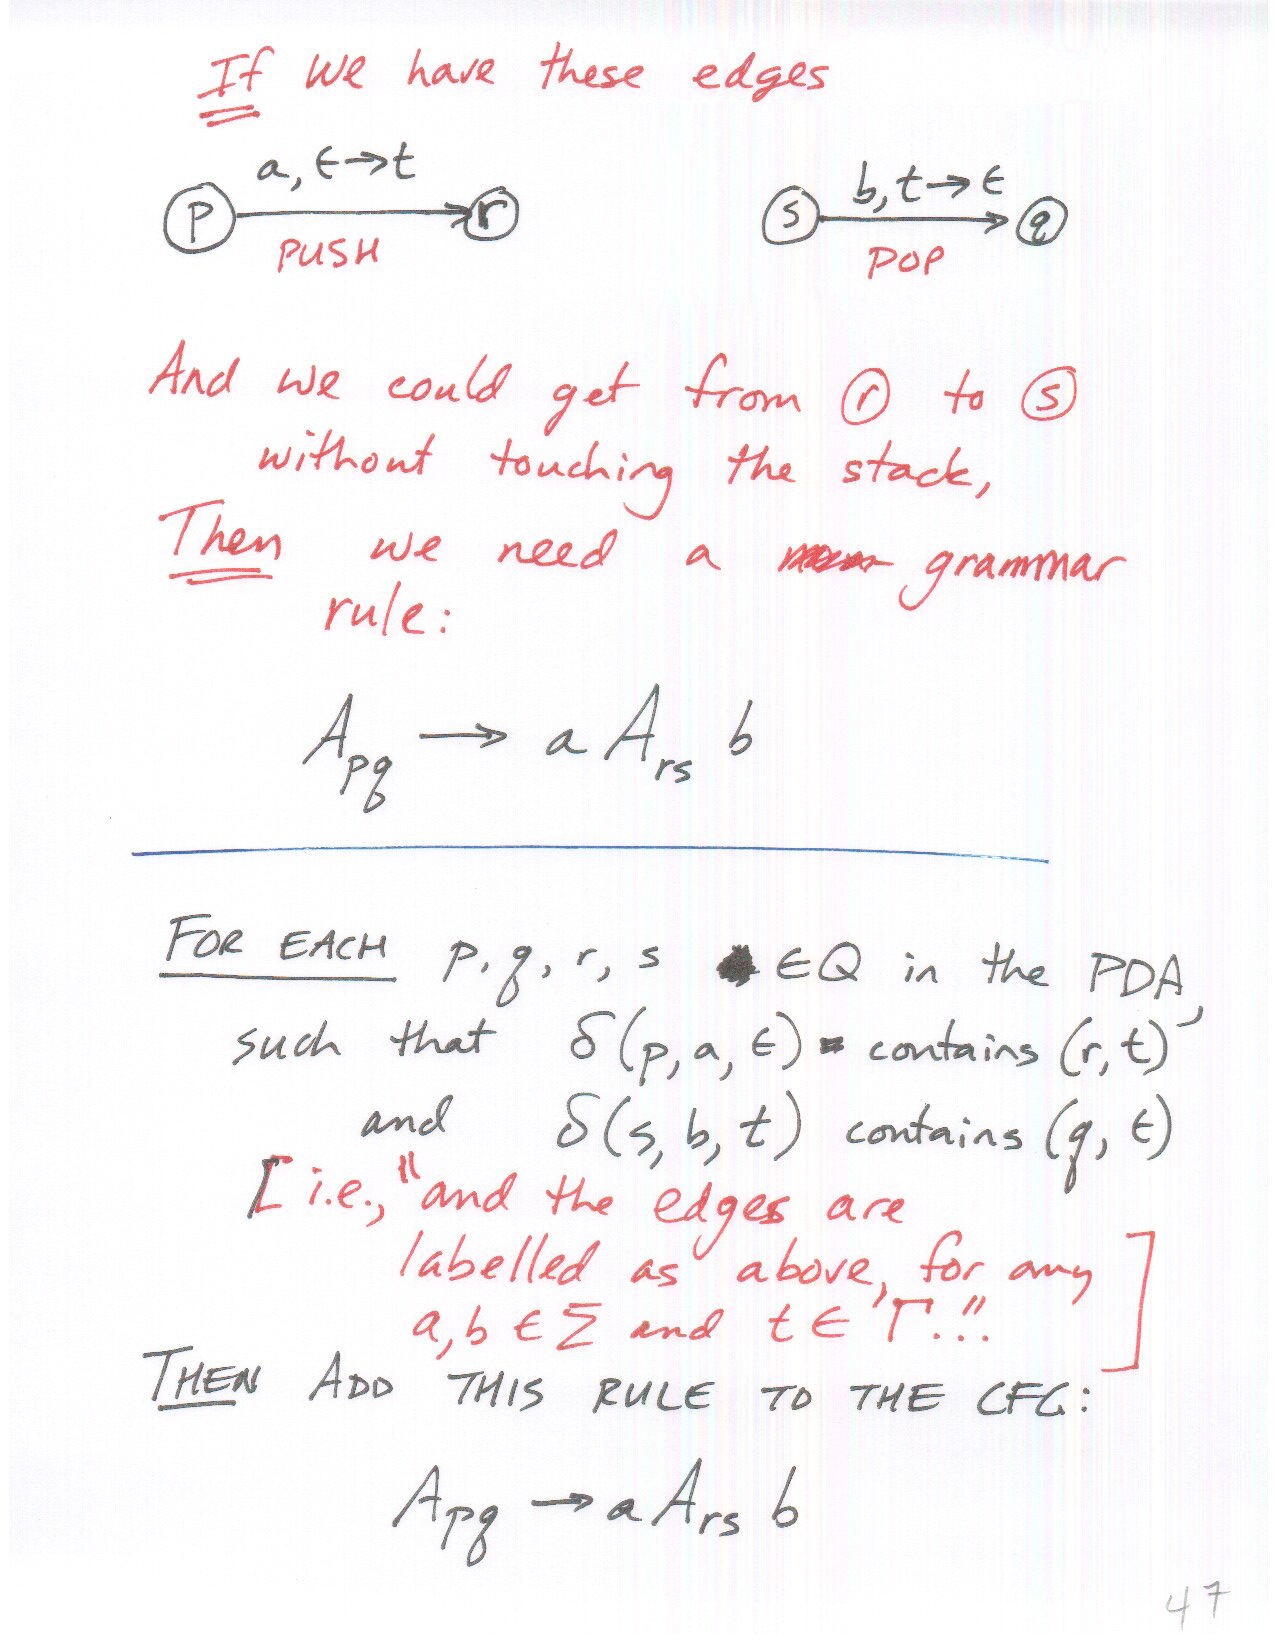 If we have these edges
a, ε→t
b, t→ε
p
r
s
q
PUSH
POP
And we could get from r to s
without touching the stack,
Then we need a grammar
rule:
A_pq → a A_rs b
FOR EACH p, q, r, s ∈ Q in the PDA,
such that δ(p, a, ε) contains (r, t)
and δ(s, b, t) contains (q, ε)
[i.e., "and the edges are
labelled as above, for any
a, b ∈ Σ and t ∈ Γ..."]
THEN ADD THIS RULE TO THE CFG:
A_pq → a A_rs b
47